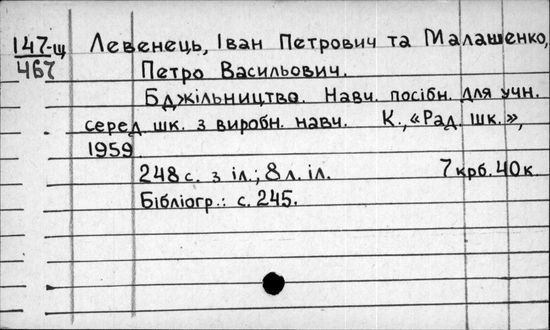 147-щ
467
Левенець, Іван Петрович та Малашенко,
Петро Васильович.
Бджільництво. Навч. посібн. для учн.
серед. шк. з виробн. навч. К., «Рад. шк.»,
1959
248 с. з іл.; 8 л. іл. 7 крб. 40 к.
Бібліогр.: с. 245.